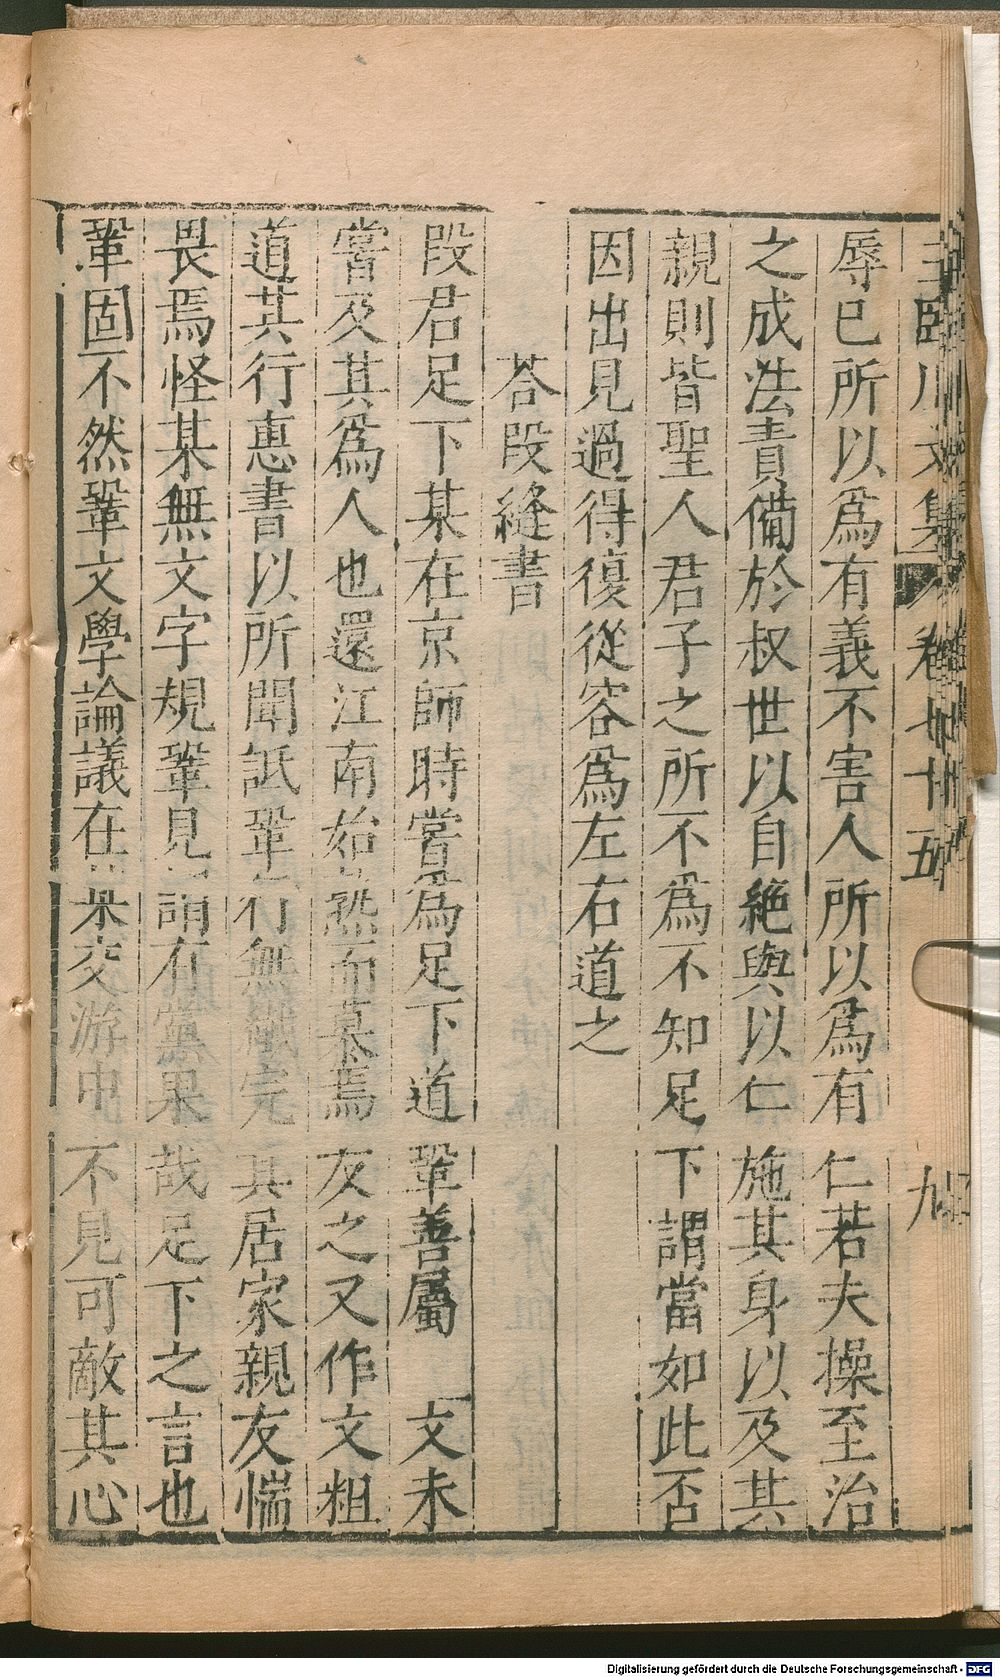 王臨川文集 卷七十五 九
辱已所以爲有義不害人所以爲有仁若夫操至治
之成法責備於叔世以自絶與以仁施其身以及其
親則皆聖人君子之所不爲不知足下謂當如此否
因出見過得復從容爲左右道之
荅段縫書
段君足下某在京師時嘗爲足下道鞏善屬文未
嘗及其爲人也還江南始熟而慕焉友之又作文粗
道其行惠書以所聞詆鞏行無纎完其居家親友惴
畏焉怪某無文字規鞏見謂有黨果哉足下之言也
鞏固不然鞏文學論議在某交游中不見可敵其心
Digitalisierung gefördert durch die Deutsche Forschungsgemeinschaft - DFG